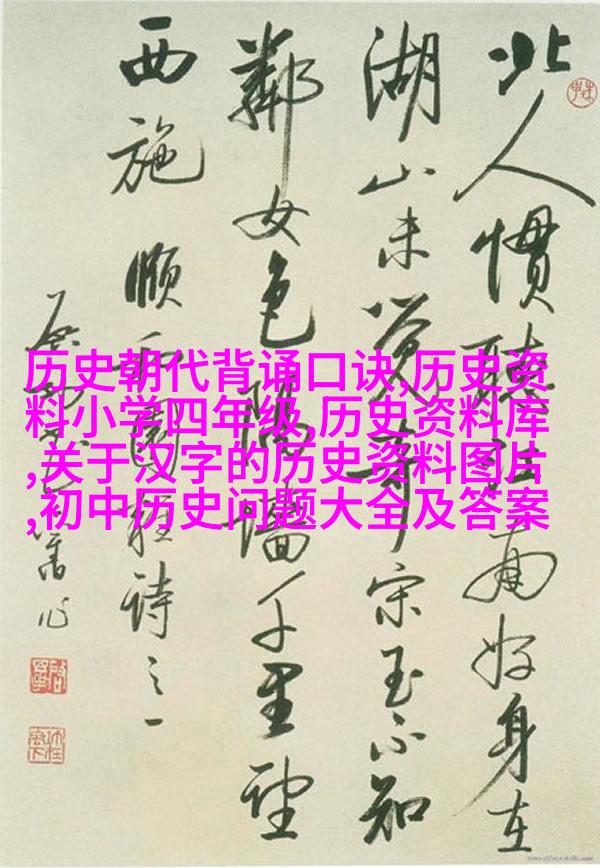 历史朝代背诵口诀,历史资
料小学四年级,历史资料库
,关于汉字的历史资料图片
,初中历史问题大全及答案
北人慣聽江南好身在
湖山未覺奇宋玉不知
鄰女色隔墻千里望
西施 頤和園詩之一
舊作